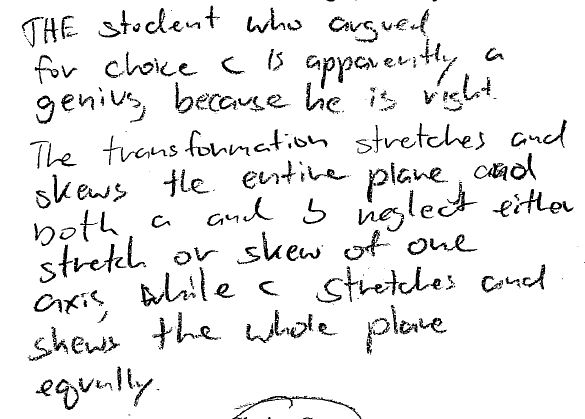 THE student who argued
for choice c is apparently a
genius, because he is right.
The transformation stretches and
skews the entire plane, and
both a and b neglect either
stretch or skew of one
axis, while c stretches and
skews the whole plane
equally.